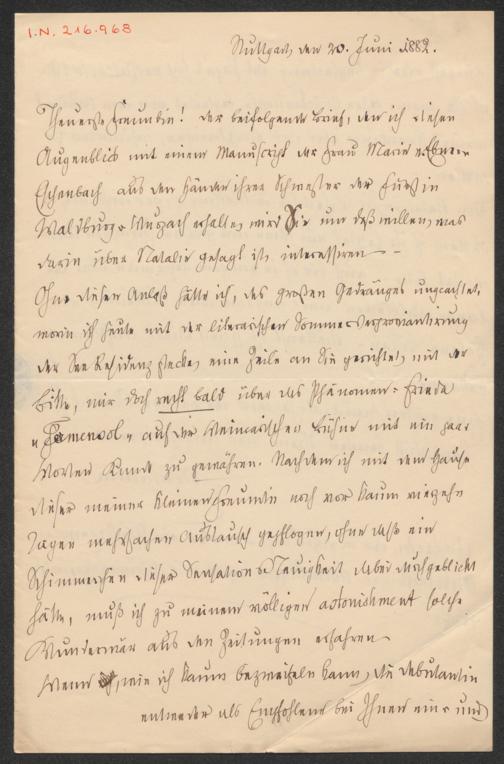 I.N. 216.968
Stuttgart, den 20. Juni 1882.
Theuerste Freundin! Der beifolgende Brief, den ich diesen
Augenblick mit einem Manuscript der Frau Marie v. Ebner-
Eschenbach aus den Händen ihrer Schwester der Fürstin
Waldburg-Wurzach erhalte, wird Sie um deß willen, was
darin über Natalie gesagt ist, interessiren –
Ohne diesen Anlaß hätte ich, des großen Gedränges ungeachtet,
worin ich heute mit der literarischen Sommerverproviantirung
der See-Residenz stecke, eine Zeile an Sie gerichtet, mit der
Bitte, mir doch recht bald über das Phänomen-Frieda
auf der Weimarischen Bühne mit ein paar
Worten Kunde zu gewähren. Nachdem ich mit dem Hause
dieser meiner kleinen Freundin noch vor kaum vierzehn
Tagen mehrfachen Austausch gepflogen, ohne daß ein
Schimmerchen dieser Sensations-Neuigkeit dabei durchgeblickt
hätte, muß ich zu meinem völligen astonishment solche
Wundermär aus den Zeitungen erfahren
Wenn, wie ich kaum bezweifeln kann, die Debutantin
entweder als Empfohlene bei Ihnen ein- und